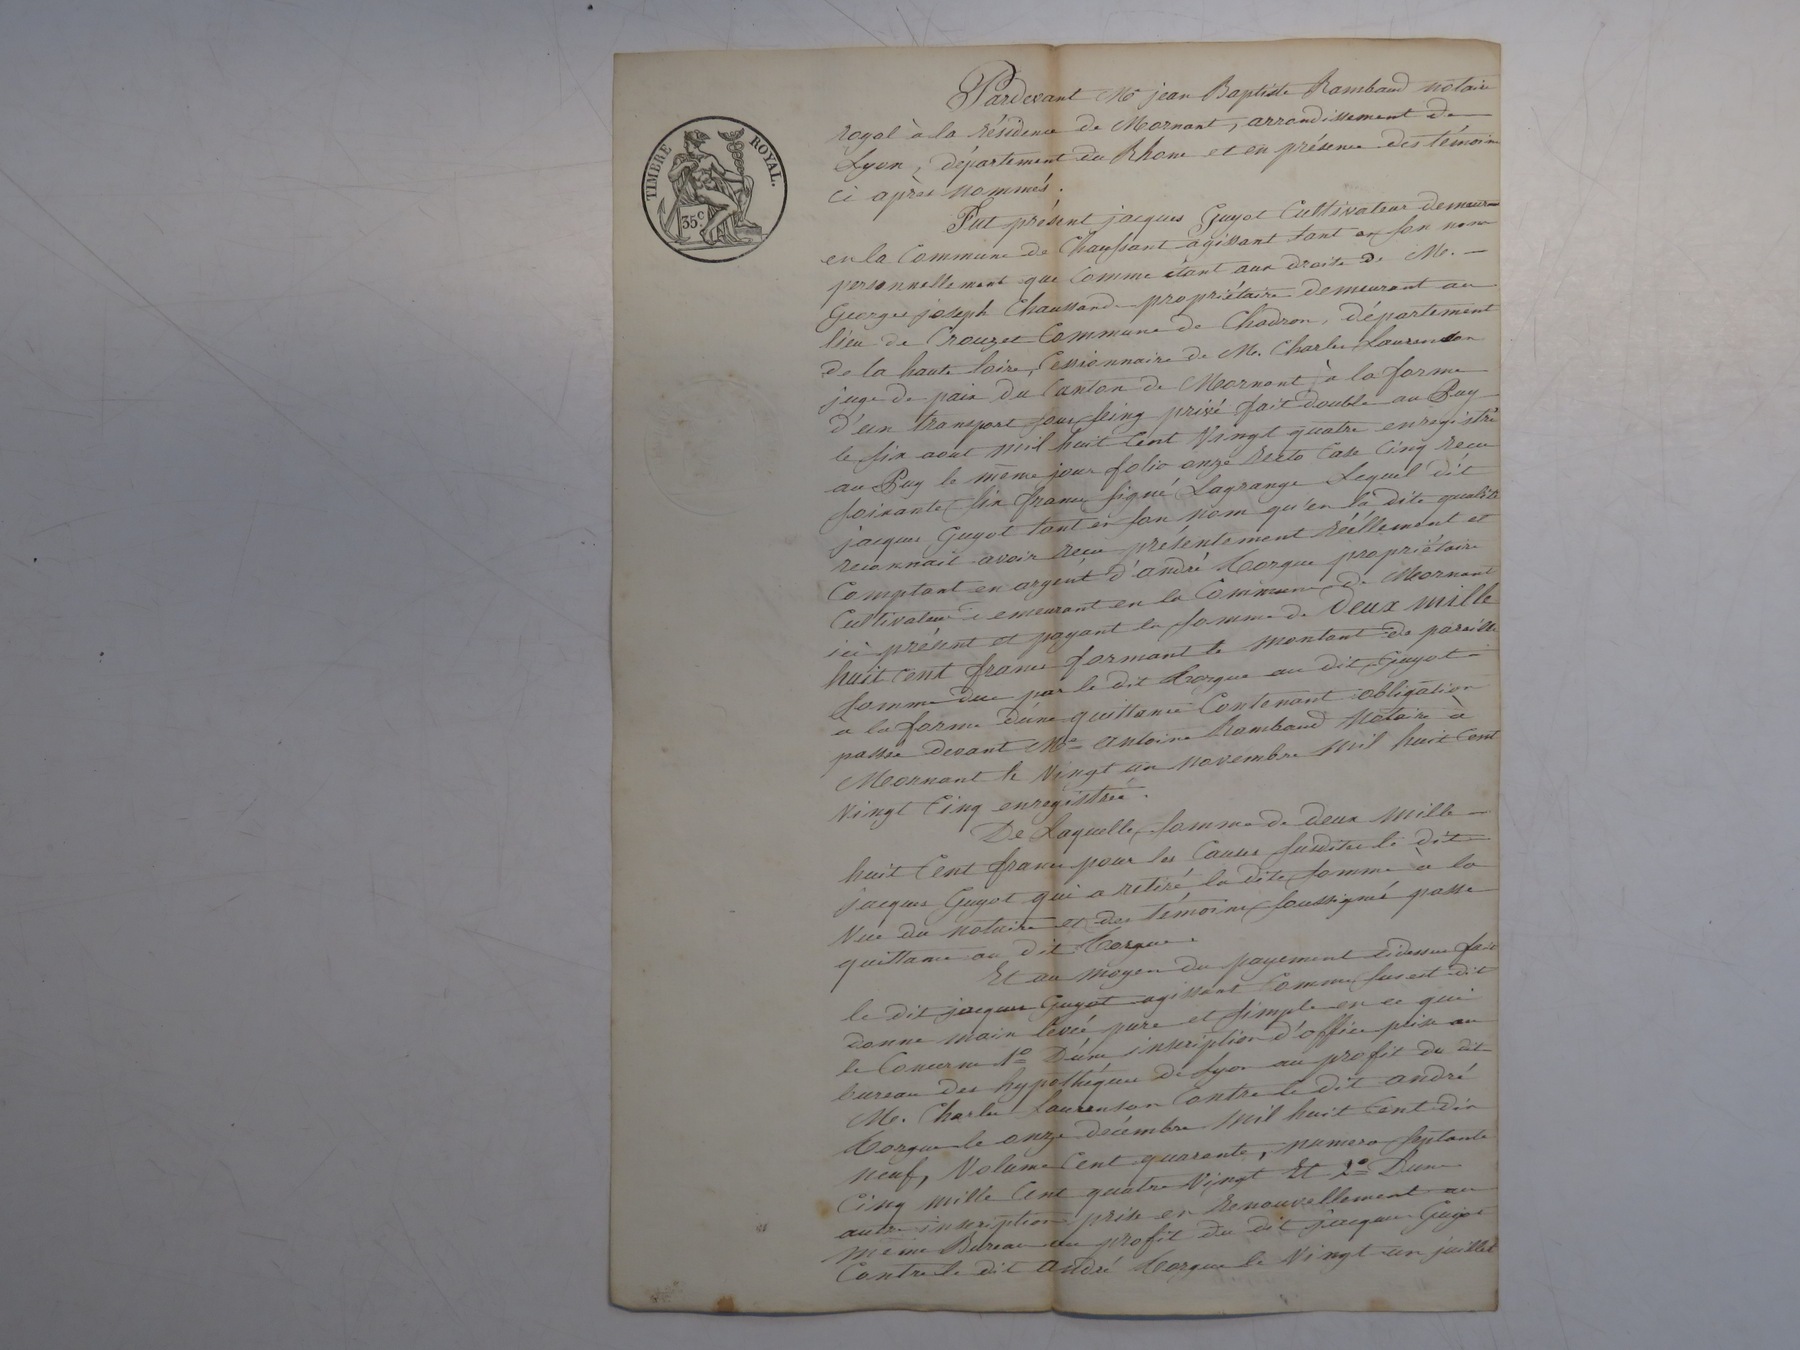 TIMBRE ROYAL.
35c
Pardevant Me jean Baptiste Rambaud notaire
royal à la résidence de Mornant, arrondissement de
Lyon, département du Rhone et en présence des témoins
ci après nommés.
Fut présent jacques Guyot Cultivateur demeurant
en la Commune de Chaussant agissant tant en son nom
personnellement que Comme étant aux droits de M.
George joseph Chaussand propriétaire demeurant au
lieu de Crouzet Commune de Chadron, département
de la haute loire, Cessionnaire de M. Charles Laurenson
juge de paix du Canton de Mornant, à la forme
d'un transport sous seing privé fait double au Puy
le six aout mil huit Cent Vingt quatre enregistré
au Puy le même jour folio onze Recto Case Cinq recu
soixante six francs signé Lagrange Lequel dit
jacques Guyot tant en son nom qu'en la dite qualité
reconnait avoir recu présentement réellement et
Comptant en argent d'andré propriétaire
Cultivateur demeurant en la Commune de Mornant
ici présent et payant la somme de Deux mille
huit Cent francs formant le montant de pareille
somme due par le dit au dit Guyot
a la forme d'une quittance Contenant obligation
passée devant Me antoine Rambaud Notaire à
Mornant le Vingt un novembre mil huit Cent
Vingt Cinq enregistrée.
De Laquelle somme de deux mille
huit Cent francs pour les Causes susdites le dit
jacques Guyot qui a retiré la dite somme à la
Vue du notaire et des témoins soussignés passe
quittance au dit
Et au moyen du payement cidessus fait
le dit jacques Guyot agissant Comme sus est dit
donne main levée pure et simple en ce qui
le Concerne 1o D'une inscription d'office prise au
bureau des hypothéques de Lyon au profit du dit
M. Charles Laurenson Contre le dit andré
le onze décembre mil huit Cent dix
neuf, Volume Cent quarante, numero septante
Cinq mille Cent quatre Vingt Et 2o D'une
autre inscription prise en Renouvellement au
même Bureau au profit du dit jacques Guyot
Contre le dit andré le Vingt un juillet